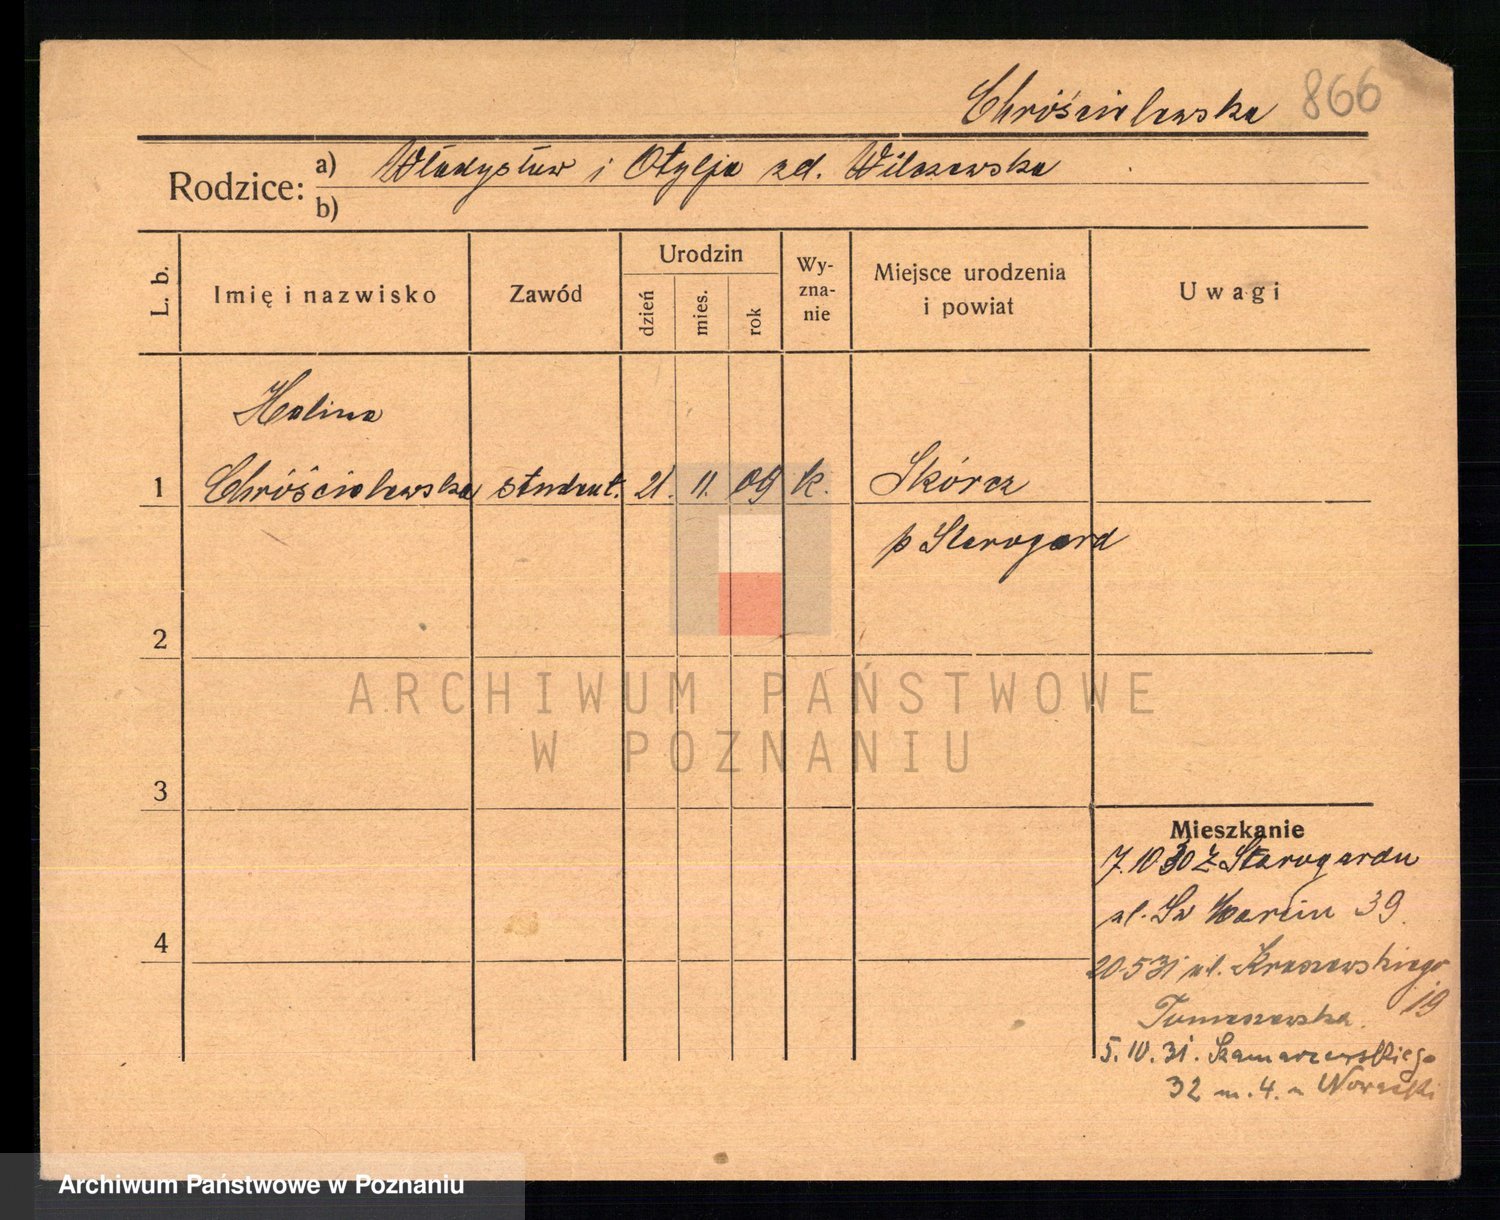 Chróścielewska 866
Rodzice: a) Władysław i Otylja zd. Wilczewska
b)
L. b. Imię i nazwisko Zawód Urodzin dzień mies. rok Wy-zna-nie Miejsce urodzenia i powiat Uwagi
Halina
1 Chróścielewska student. 21. 11. 09 k. Skórcz
p Starogard
2
ARCHIWUM PAŃSTWOWE
W POZNANIU
3
Mieszkanie
7.10 30 z Starogardu
ul. Św Marcin 39.
4
20.5 31 ul. Kraszewskiego
19
Tomaszewska.
5.10.31. Szamarzewskiego
32 m. 4.
Archiwum Państwowe w Poznaniu